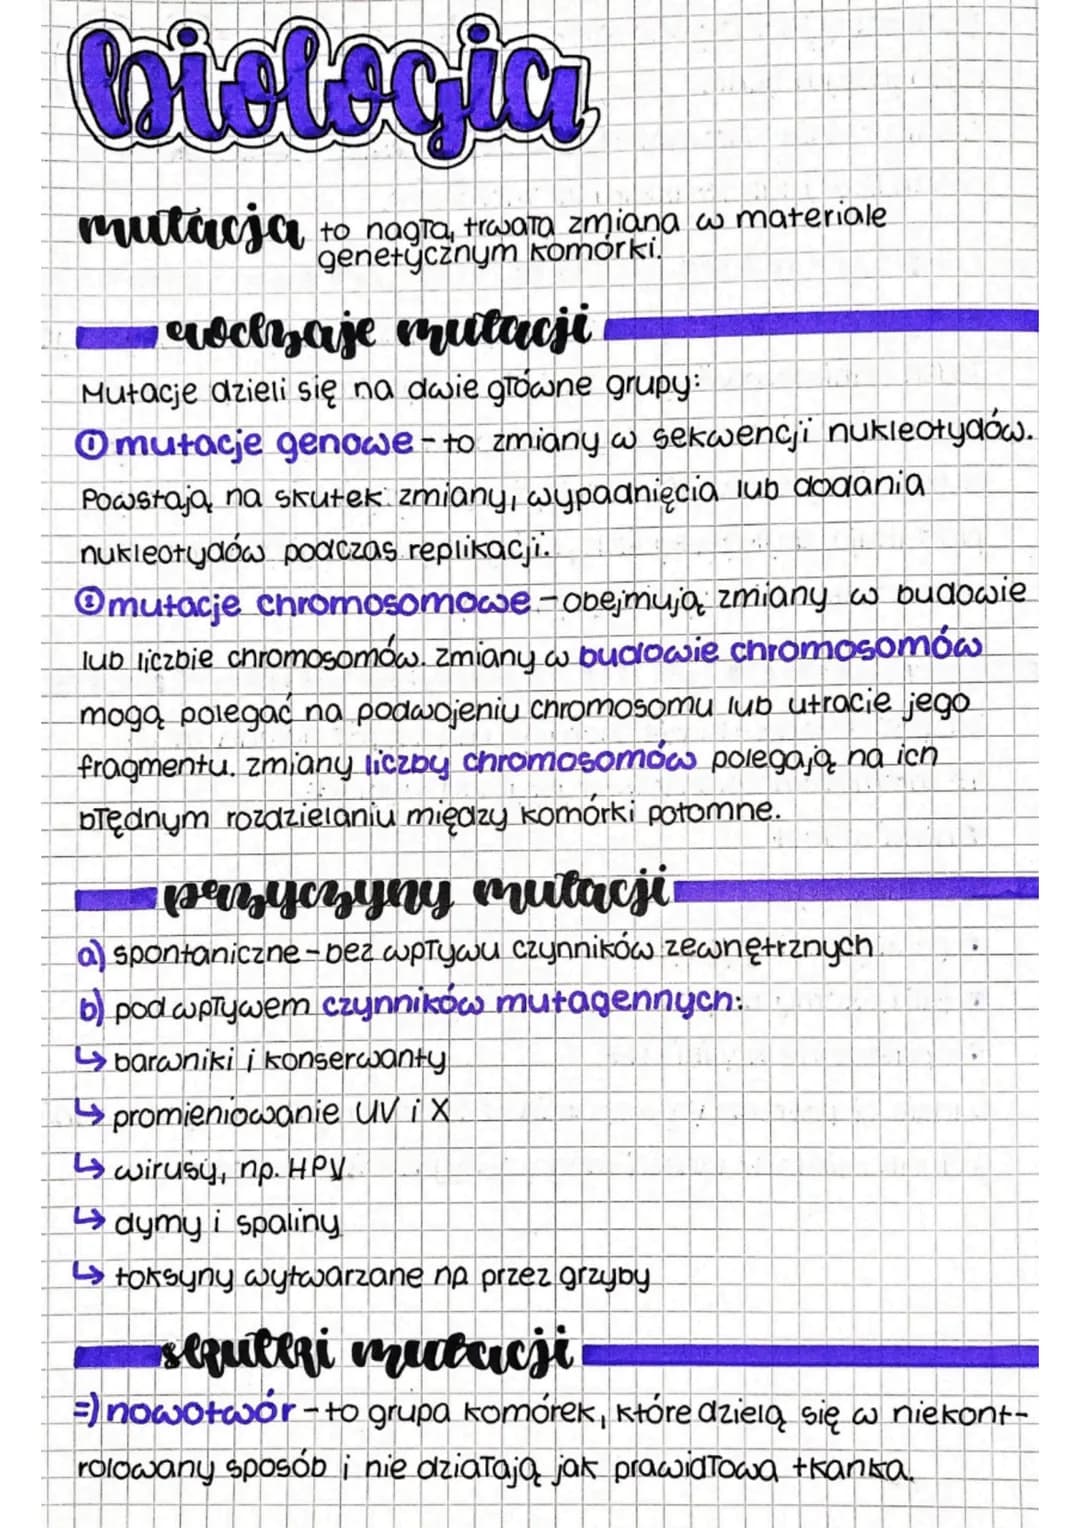 biologia
mutacja to nagła, trwała zmiana w materiale
genetycznym komórki.
rodzaje mutacji
Mutacje dzieli się na dwie główne grupy:
① mutacje genowe - to zmiany w sekwencji nukleotydów.
Powstają na skutek zmiany, wypadnięcia lub dodania
nukleotydów podczas replikacji.
② mutacje chromosomowe - obejmują zmiany w budowie
lub liczbie chromosomów. zmiany w budowie chromosomów
mogą polegać na podwojeniu chromosomu lub utracie jego
fragmentu. zmiany liczby chromosomów polegają na ich
błędnym rozdzielaniu między komórki potomne.
przyczyny mutacji
a) spontaniczne - bez wpływu czynników zewnętrznych
b) pod wpływem czynników mutagennych:
↳ barwniki i konserwanty
↳ promieniowanie UV i X
↳ wirusy, np. HPV
↳ dymy i spaliny
↳ toksyny wytwarzane np przez grzyby
skutki mutacji
=) nowotwór - to grupa komórek, które dzielą się w niekont-
rolowany sposób i nie działają jak prawidłowa tkanka.